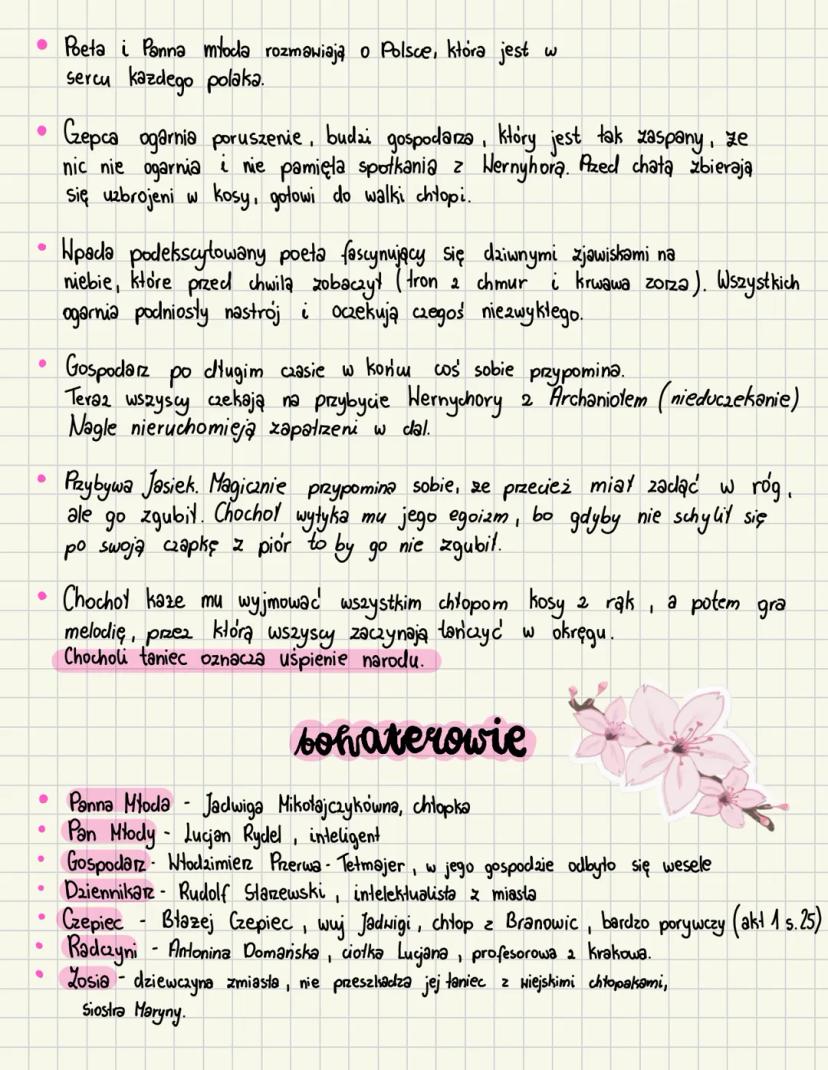 • Poeta i Panna młoda rozmawiają o Polsce, która jest w
sercu każdego polaka.
• Czepca ogarnia poruszenie, budzi gospodarza, który jest tak zaspany, że
nic nie ogarnia i nie pamięta spotkania z Wernyhorą. Przed chatą zbierają
się uzbrojeni w kosy, gotowi do walki chłopi.
• Wpada podekscytowany poeta fascynujący się dziwnymi zjawiskami na
niebie, które przed chwilą zobaczył (tron z chmur i krwawa zorza). Wszystkich
ogarnia podniosły nastrój i oczekują czegoś niezwykłego.
• Gospodarz po długim czasie w końcu coś sobie przypomina.
Teraz wszyscy czekają na przybycie Wernychory z Archaniołem (nieduczekanie)
Nagle nieruchomieją zapatrzeni w dal.
• Przybywa Jasiek. Magicznie przypomina sobie, że przecież miał zadąć w róg,
ale go zgubił. Chochoł wytyka mu jego egoizm, bo gdyby nie schylił się
po swoją czapkę z piór to by go nie zgubił.
• Chochoł każe mu wyjmować wszystkim chłopom kosy z rąk, a potem gra
melodię, przez którą wszyscy zaczynają tańczyć w okręgu.
Chocholi taniec oznacza uśpienie narodu.
bohaterowie
• Panna Młoda - Jadwiga Mikołajczykówna, chłopka
• Pan Młody - Lucjan Rydel, inteligent
• Gospodarz - Włodzimierz Przerwa-Tetmajer, w jego gospodzie odbyło się wesele
• Dziennikarz - Rudolf Starzewski, intelektualista z miasta
• Czepiec - Błażej Czepiec, wuj Jadwigi, chłop z Branowic, bardzo porywczy (akt 1 s.25)
• Radczyni - Antonina Domańska, ciotka Lucjana, profesorowa z krakowa.
• Zosia - dziewczyna zmiasta, nie przeszkadza jej taniec z wiejskimi chłopakami,
siostra Maryny.